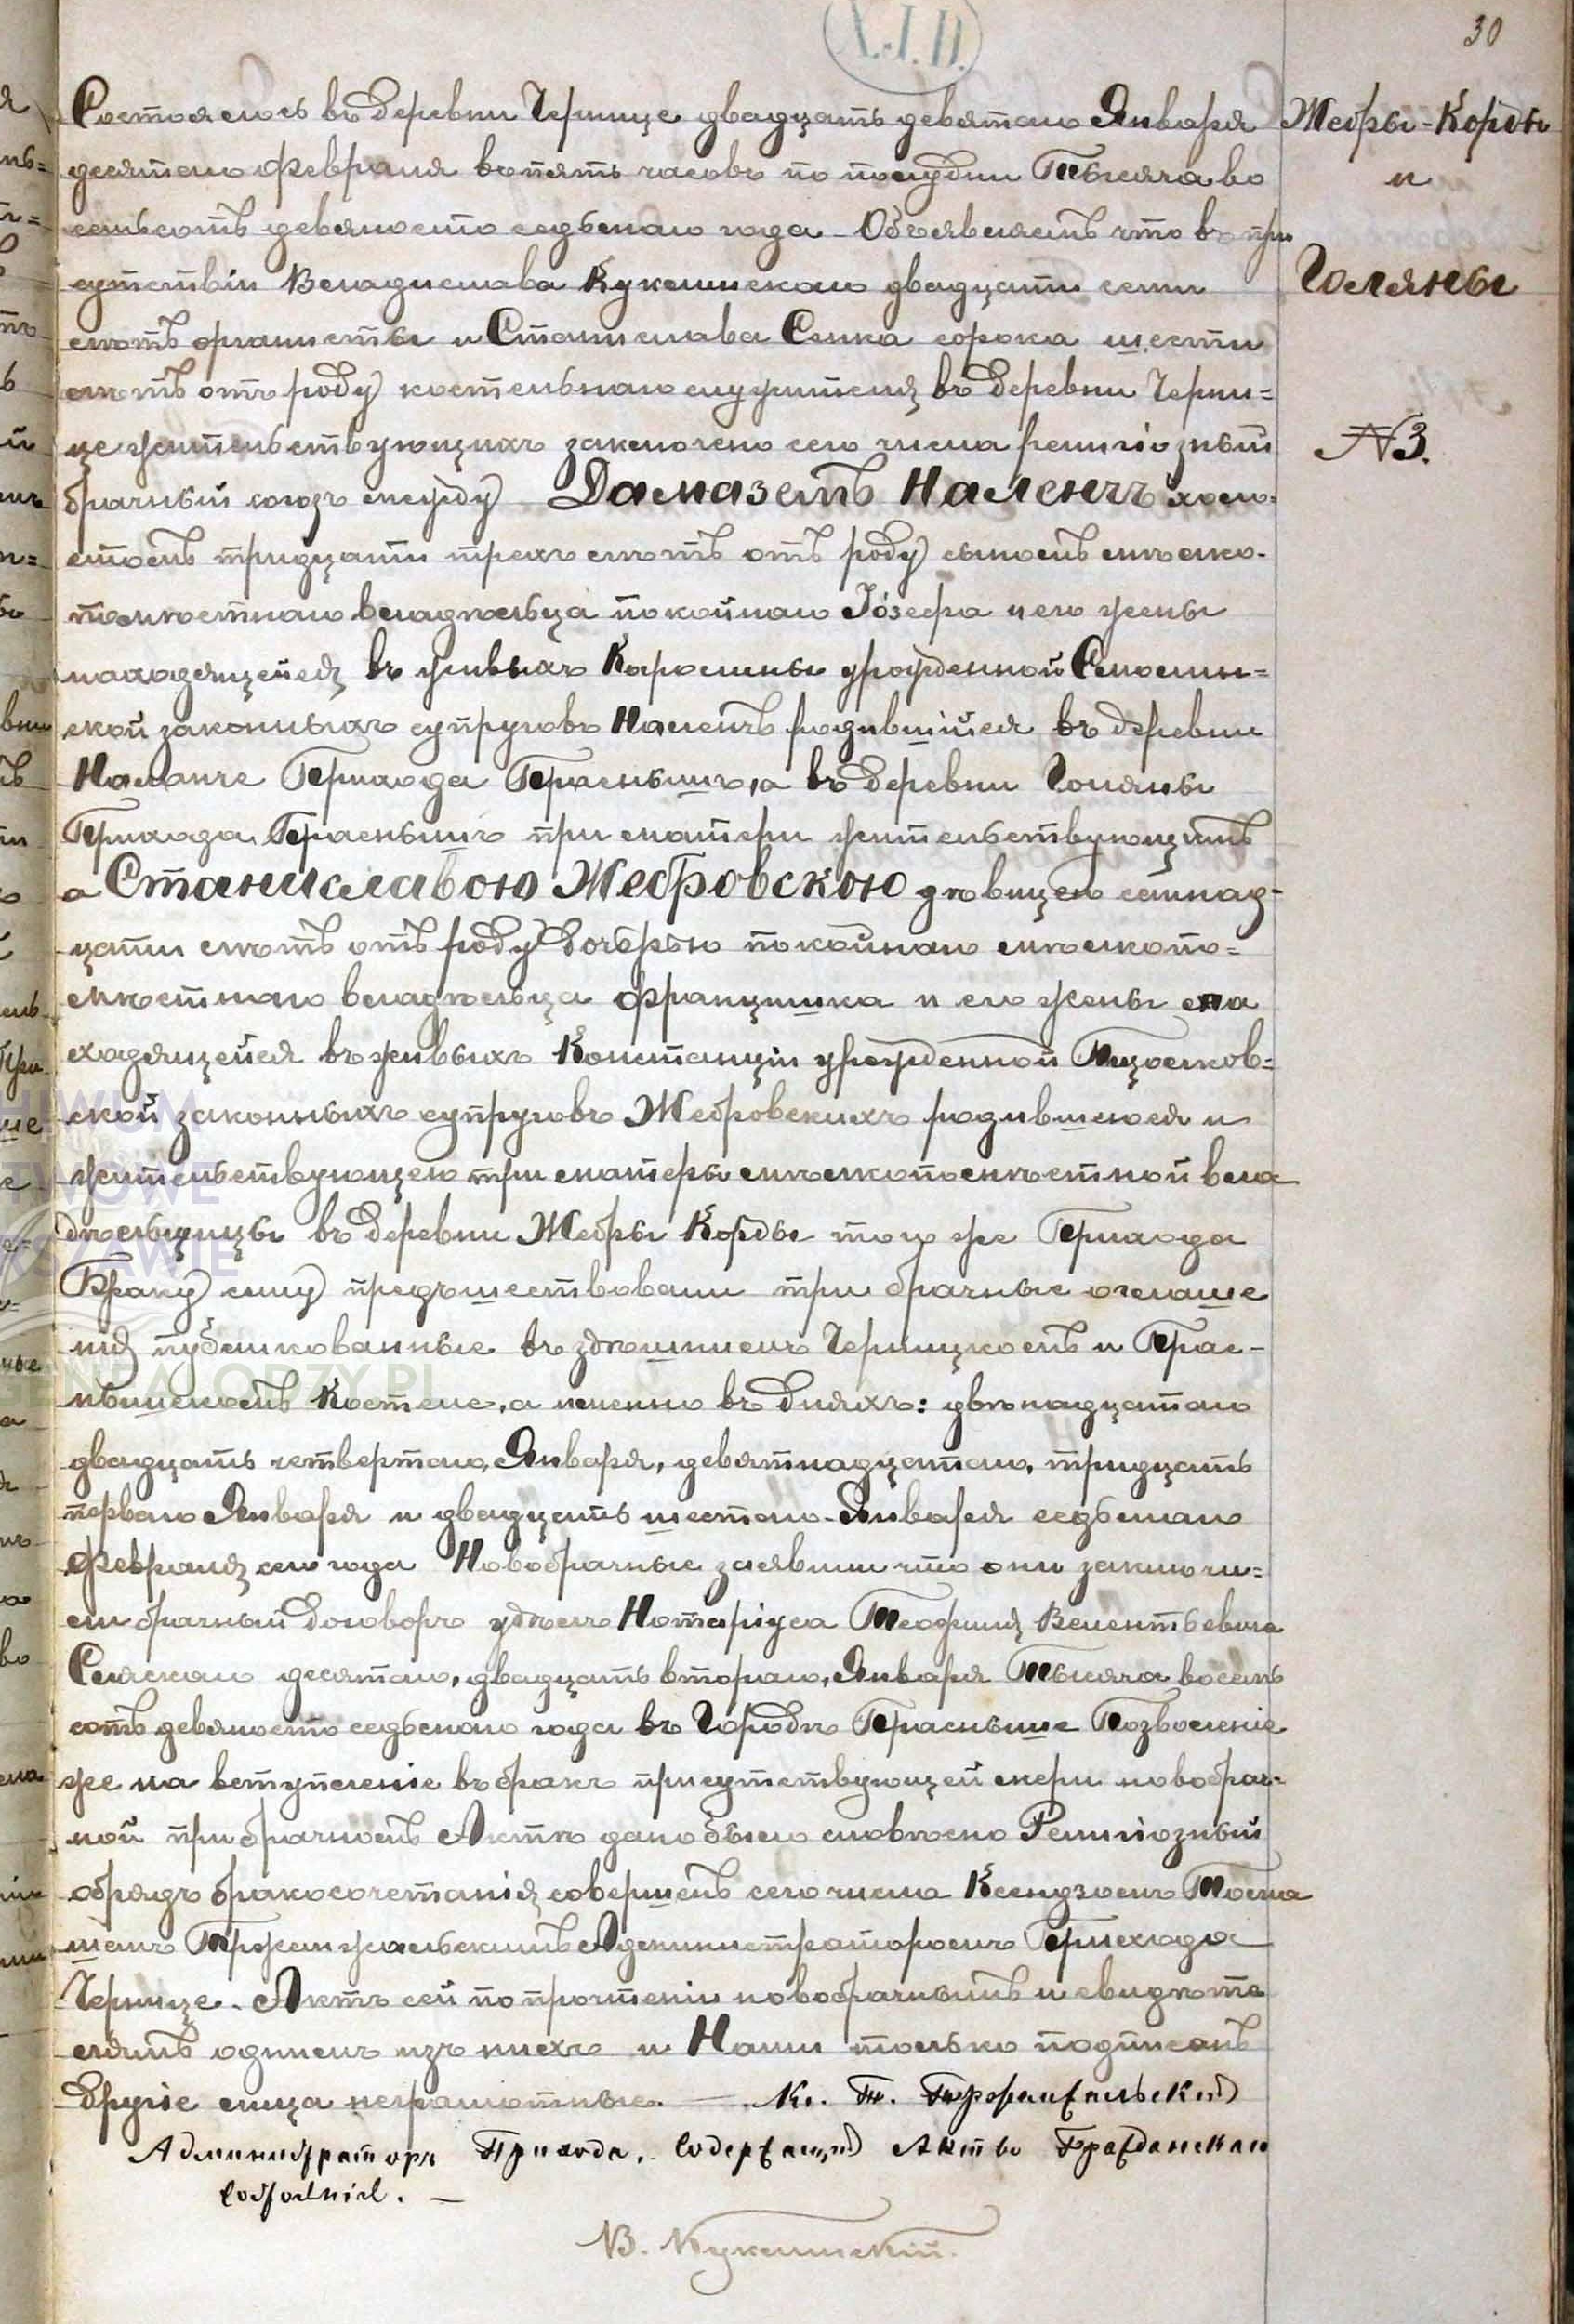 30
Состоялось въ деревни Чернице двадцать девятаго Января
Жебры-Корды
десятаго февраля въ пять часовъ по полудни Тысяча во
и
семьсотъ девяносто седьмаго года - Объявляемъ что въ при
сутствіи Владислава Куклинскаго двадцати семи
Голяны
лѣтъ органисты и Станислава Сенка сорока шести
лѣтъ отъ роду костельнаго служителя въ деревни Черни=
це жительствующихъ заключено сего числа религіозный
№3.
брачный союзъ между Дамаземъ Наленчъ холо-
стомъ тридцати трехъ лѣтъ отъ роду сыномъ мѣлко-
помѣстнаго владѣльца покойнаго Іозефа и его жены
находящейся въ живыхъ Каролины урожденной Смолин=
ской законныхъ супруговъ Наленчъ родившійся въ деревни
Наленче Прихода Праснышъ, а въ деревни Голяны
Прихода Праснышъ при матери жительствующимъ
а Станиславою Жебровскою дѣвицею семнад-
цати лѣтъ отъ роду дочерью покойнаго мѣлкопо=
мѣстнаго владѣльца Францишка и его жены на
ходящейся въ живыхъ Констанціи урожденной
ской законныхъ супруговъ Жебровскихъ родившеюся и
жительствующею при матеры мѣлкопомѣстной вла
дѣльницы въ деревни Жебры Корды того же Прихода
Браку сему предъшествовали три брачные оглаше
нія публикованные въ здѣшнемъ Черницкомъ и Прас-
нышскомъ Костеле, а именно въ дняхъ: двѣнадцатаго
двадцать четвертаго, Января, девятнадцатаго, тридцать
перваго Января и двадцать шестаго - Января седьмаго
февраля сего года Новобрачные заявили что они заключи=
ли брачный договоръ у Нотаріуса Теофиля
десятаго, двадцать втораго, Января Тысяча восемь
сотъ девяносто седьмаго года въ Городѣ Праснышѣ Позволеніе
же на вступленіе въ бракъ присутствующей мери новобрач-
ной при брачномъ Актѣ дано было словѣсно Религіозный
обрядъ бракосочетанія совершенъ сего числа Ксендзомъ Тома
шемъ Администраторомъ Прихода
Чернице. Актъ сей по прочтеніи новобрачнымъ и свидѣте
лямъ однимъ изъ нихъ и Нами только подписанъ
другіе лица неграмотные. — Кс. Т.
Администраторъ Прихода, Содержащій Акты Гражданскаго
Состоянія. —
В. Куклинскій.